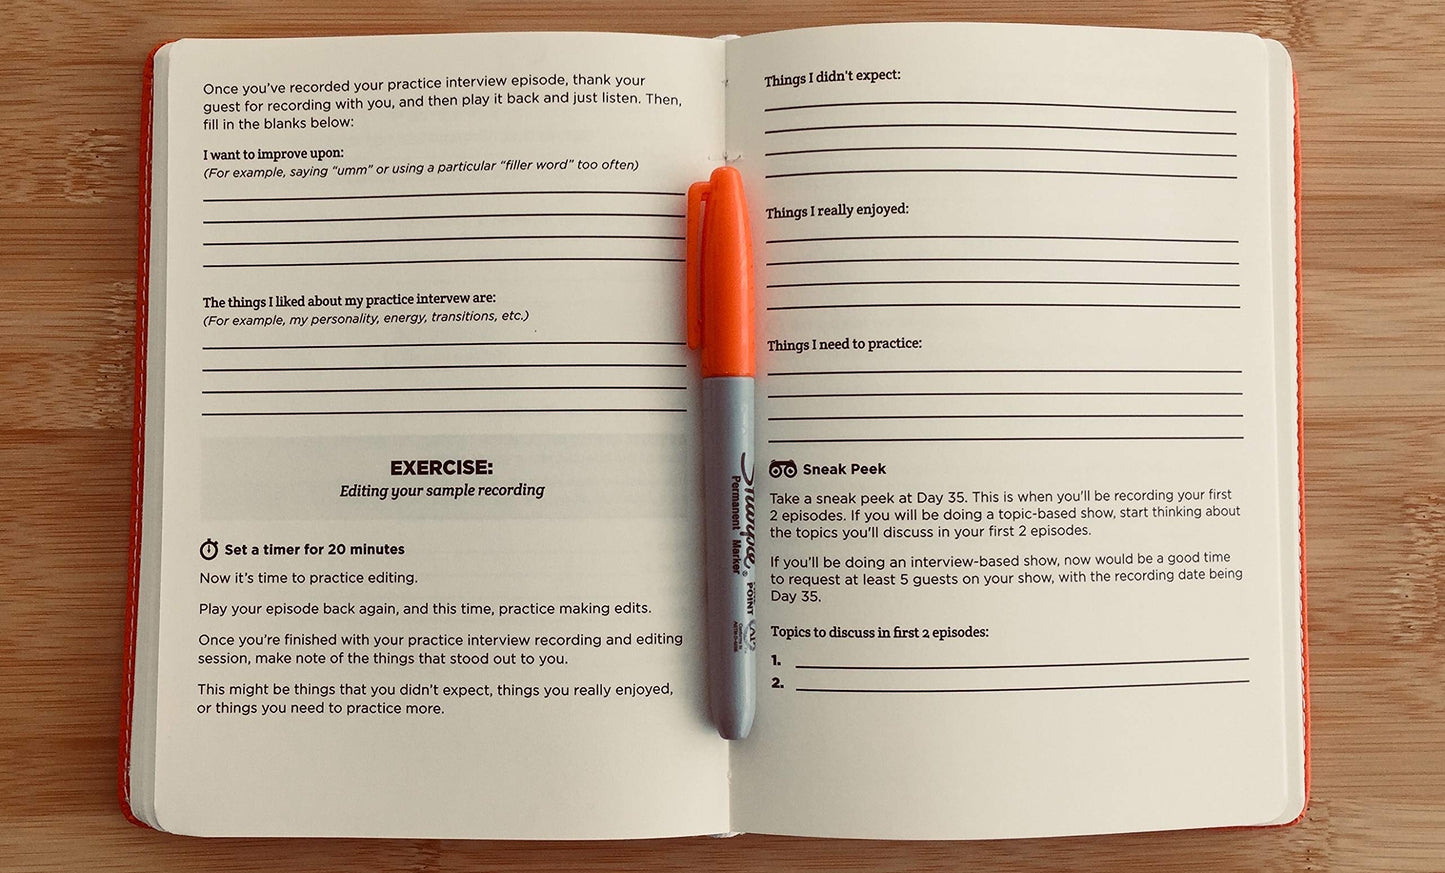 Once you've recorded your practice interview episode, thank your
guest for recording with you, and then play it back and just listen. Then,
fill in the blanks below:
I want to improve upon:
(For example, saying "umm" or using a particular "filler word" too often)
The things I liked about my practice intervew are:
(For example, my personality, energy, transitions, etc.)
EXERCISE:
Editing your sample recording
Set a timer for 20 minutes
Now it's time to practice editing.
Play your episode back again, and this time, practice making edits.
Once you're finished with your practice interview recording and editing
session, make note of the things that stood out to you.
This might be things that you didn't expect, things you really enjoyed,
or things you need to practice more.
Sharpie
Permanent Marker
POINT
Things I didn't expect:
Things I really enjoyed:
Things I need to practice:
Sneak Peek
Take a sneak peek at Day 35. This is when you'll be recording your first
2 episodes. If you will be doing a topic-based show, start thinking about
the topics you'll discuss in your first 2 episodes.
If you'll be doing an interview-based show, now would be a good time
to request at least 5 guests on your show, with the recording date being
Day 35.
Topics to discuss in first 2 episodes:
1.
2.